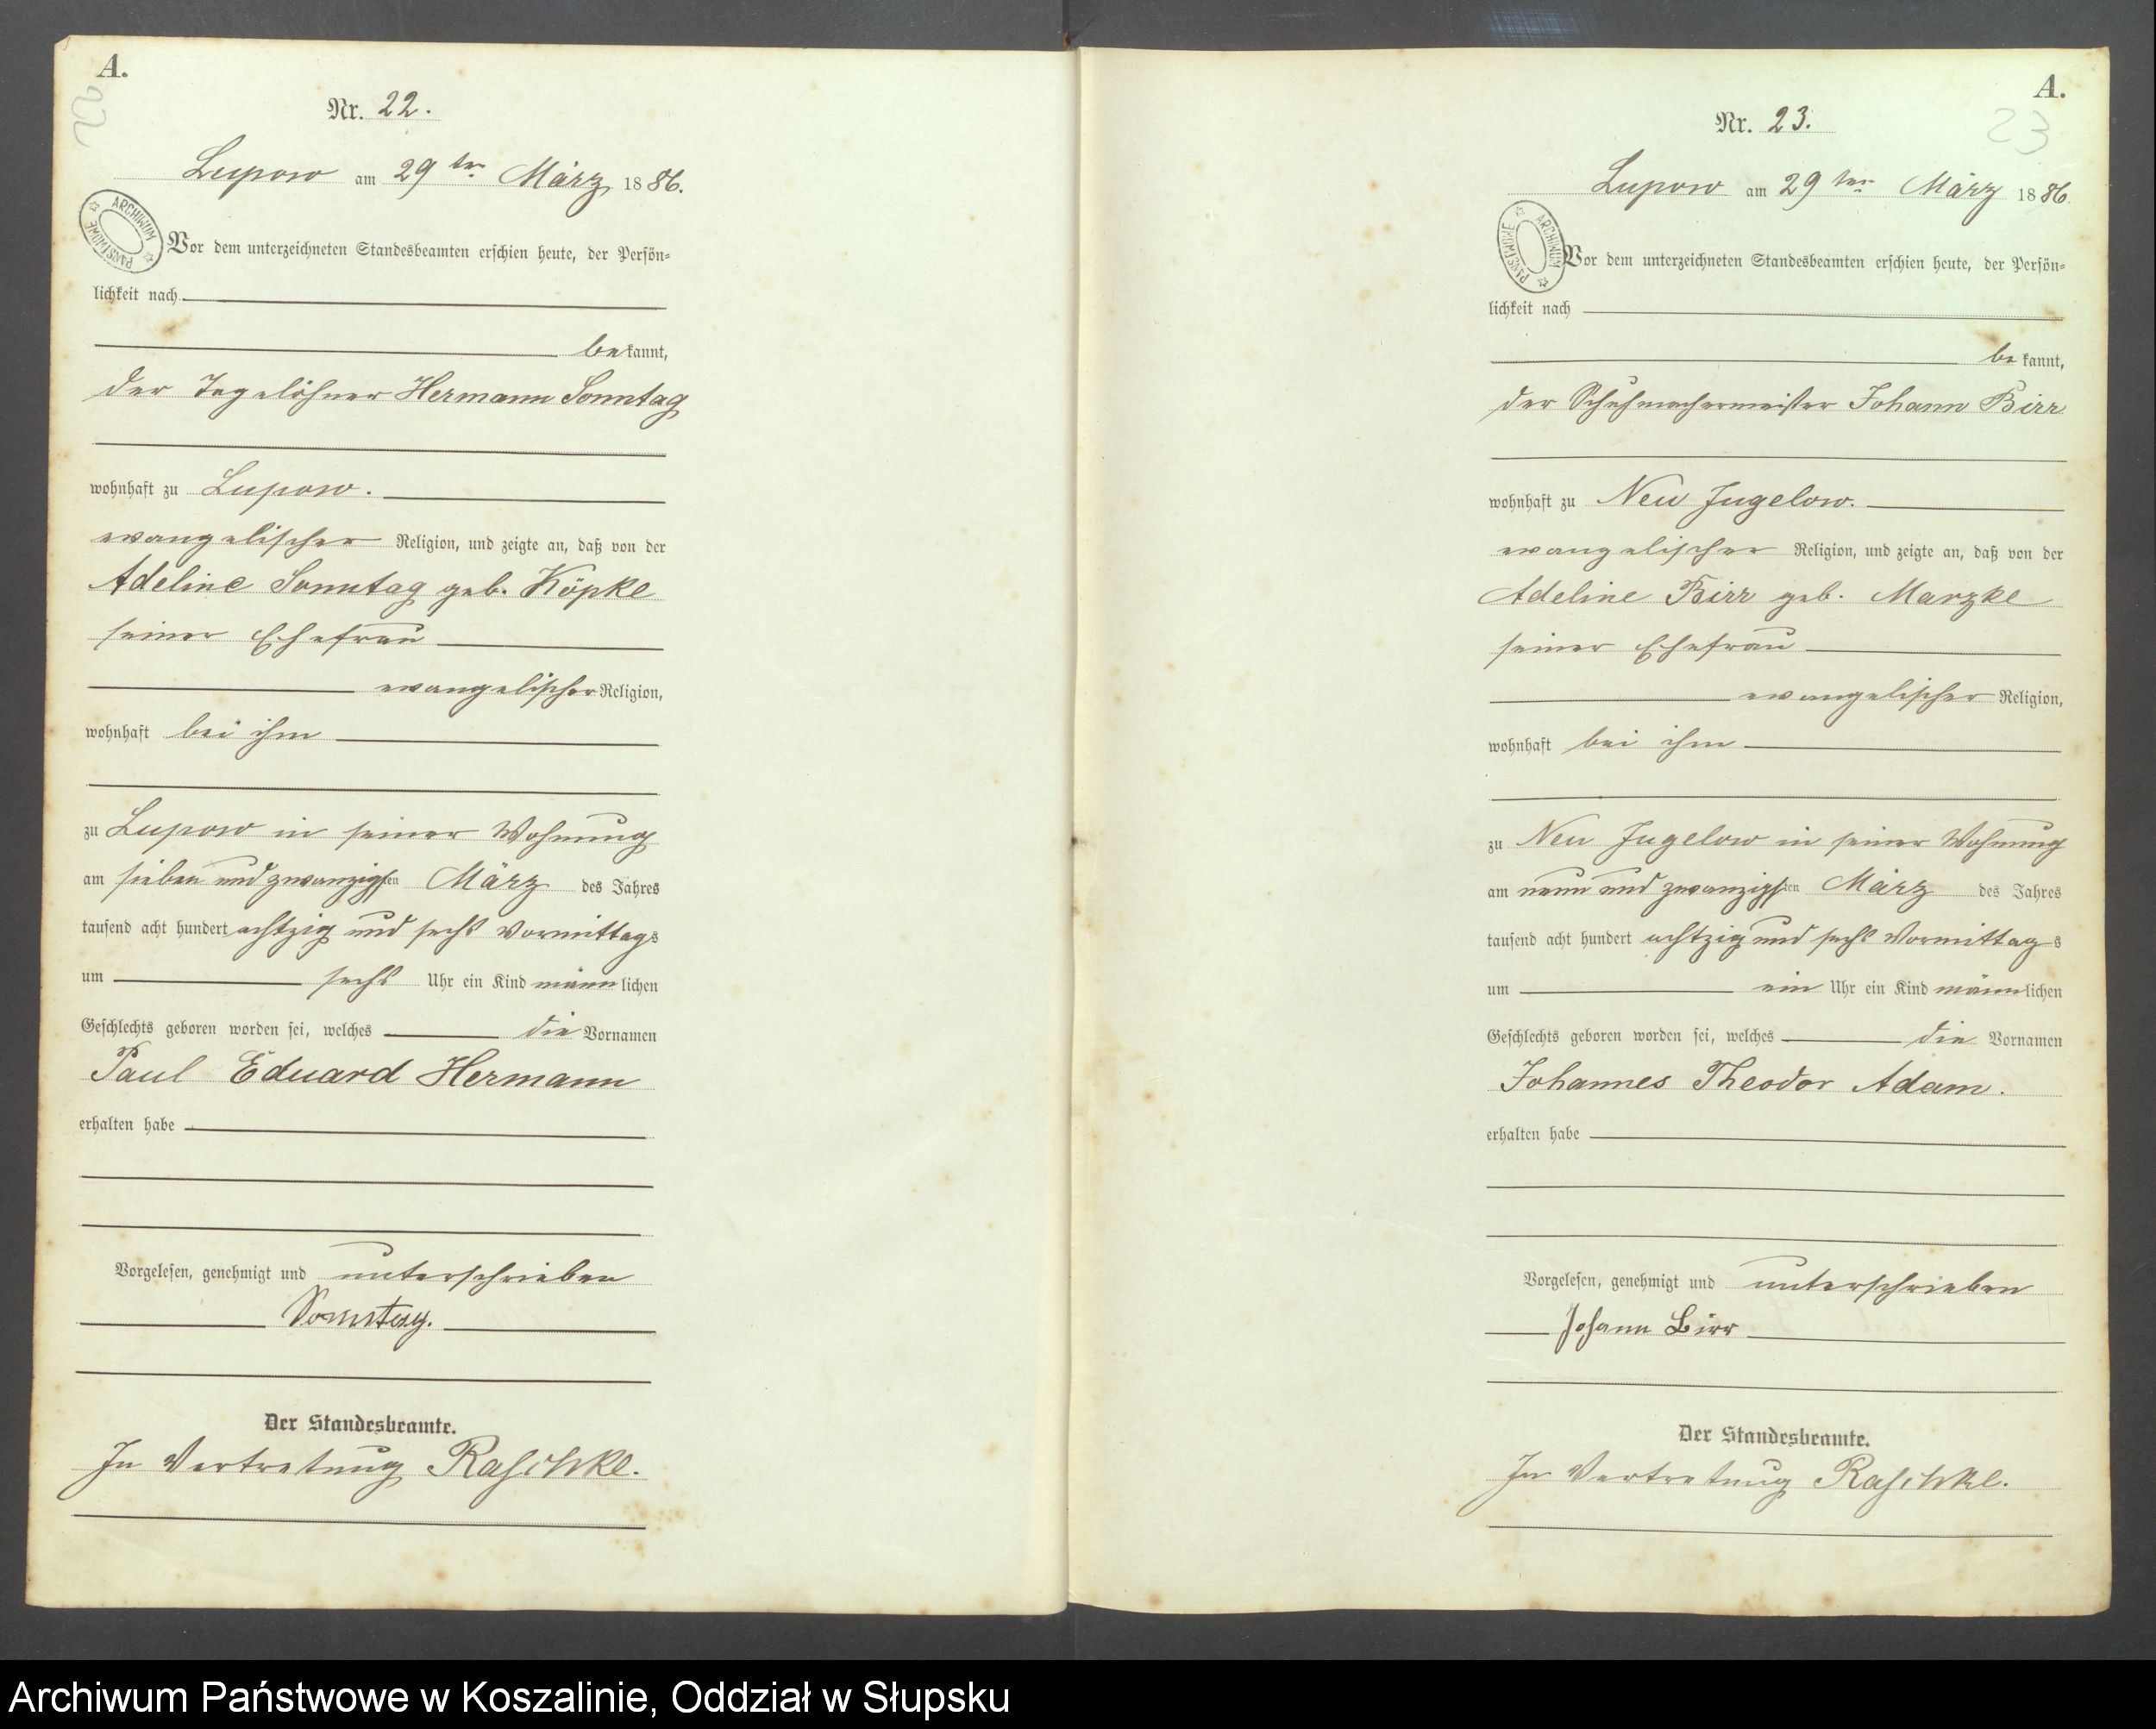 A.
22
Nr. 22.
Lupow am 29ten März 1886.
ARCHIWUM PAŃSTWOWE
Vor dem unterzeichneten Standesbeamten erschien heute, der Persön-
lichkeit nach
bekannt,
der Tagelöhner Hermann Sonntag
wohnhaft zu Lupow.
evangelischer Religion, und zeigte an, daß von der
Adeline Sonntag geb. Köpke
seiner Ehefrau
evangelischer Religion,
wohnhaft bei ihm
zu Lupow in seiner Wohnung
am sieben und zwanzigsten März des Jahres
tausend acht hundert achtzig und sechs Vormittags
um sechs Uhr ein Kind männlichen
Geschlechts geboren worden sei, welches die Vornamen
Paul Eduard Hermann
erhalten habe
Vorgelesen, genehmigt und unterschrieben
Sonntag.
Der Standesbeamte.
In Vertretung Raschke.
A.
23
Nr. 23.
Lupow am 29ten März 1886
ARCHIWUM PAŃSTWOWE
Vor dem unterzeichneten Standesbeamten erschien heute, der Persön-
lichkeit nach
bekannt,
der Schuhmachermeister Johann Birr
wohnhaft zu Neu Jugelow.
evangelischer Religion, und zeigte an, daß von der
Adeline Birr geb. Marzke
seiner Ehefrau
evangelischer Religion,
wohnhaft bei ihm
zu Neu Jugelow in seiner Wohnung
am neun und zwanzigsten März des Jahres
tausend acht hundert achtzig und sechs Vormittags
um ein Uhr ein Kind männlichen
Geschlechts geboren worden sei, welches die Vornamen
Johannes Theodor Adam.
erhalten habe
Vorgelesen, genehmigt und unterschrieben
Johann Birr
Der Standesbeamte.
In Vertretung Raschke.
Archiwum Państwowe w Koszalinie, Oddział w Słupsku